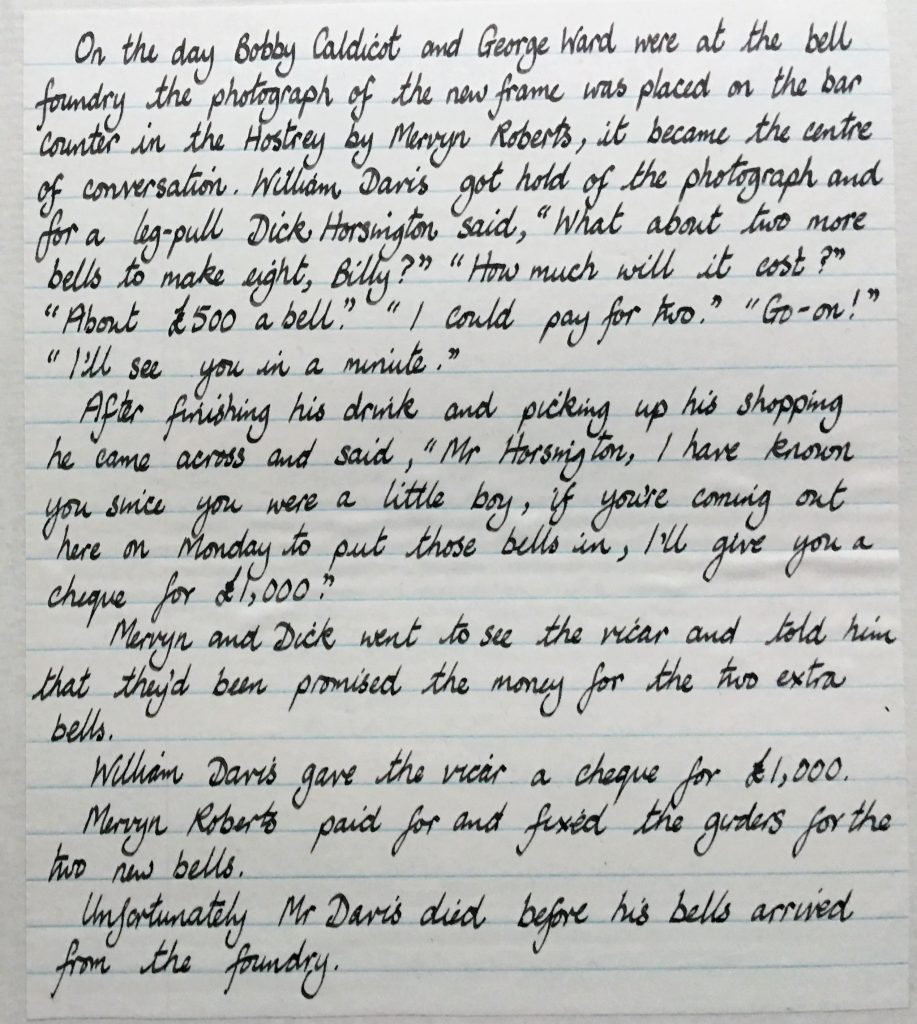 On the day Bobby Caldicot and George Ward were at the bell
foundry the photograph of the new frame was placed on the bar
counter in the Hostrey by Mervyn Roberts, it became the centre
of conversation. William Davis got hold of the photograph and
for a leg-pull Dick Horsington said, "What about two more
bells to make eight, Billy?" "How much will it cost?"
"About £500 a bell." "I could pay for two." "Go-on!"
"I'll see you in a minute."
After finishing his drink and picking up his shopping
he came across and said, "Mr Horsington, I have known
you since you were a little boy, if you're coming out
here on Monday to put those bells in, I'll give you a
cheque for £1,000."
Mervyn and Dick went to see the vicar and told him
that they'd been promised the money for the two extra
bells.
William Davis gave the vicar a cheque for £1,000.
Mervyn Roberts paid for and fixed the girders for the
two new bells.
Unfortunately Mr Davis died before his bells arrived
from the foundry.